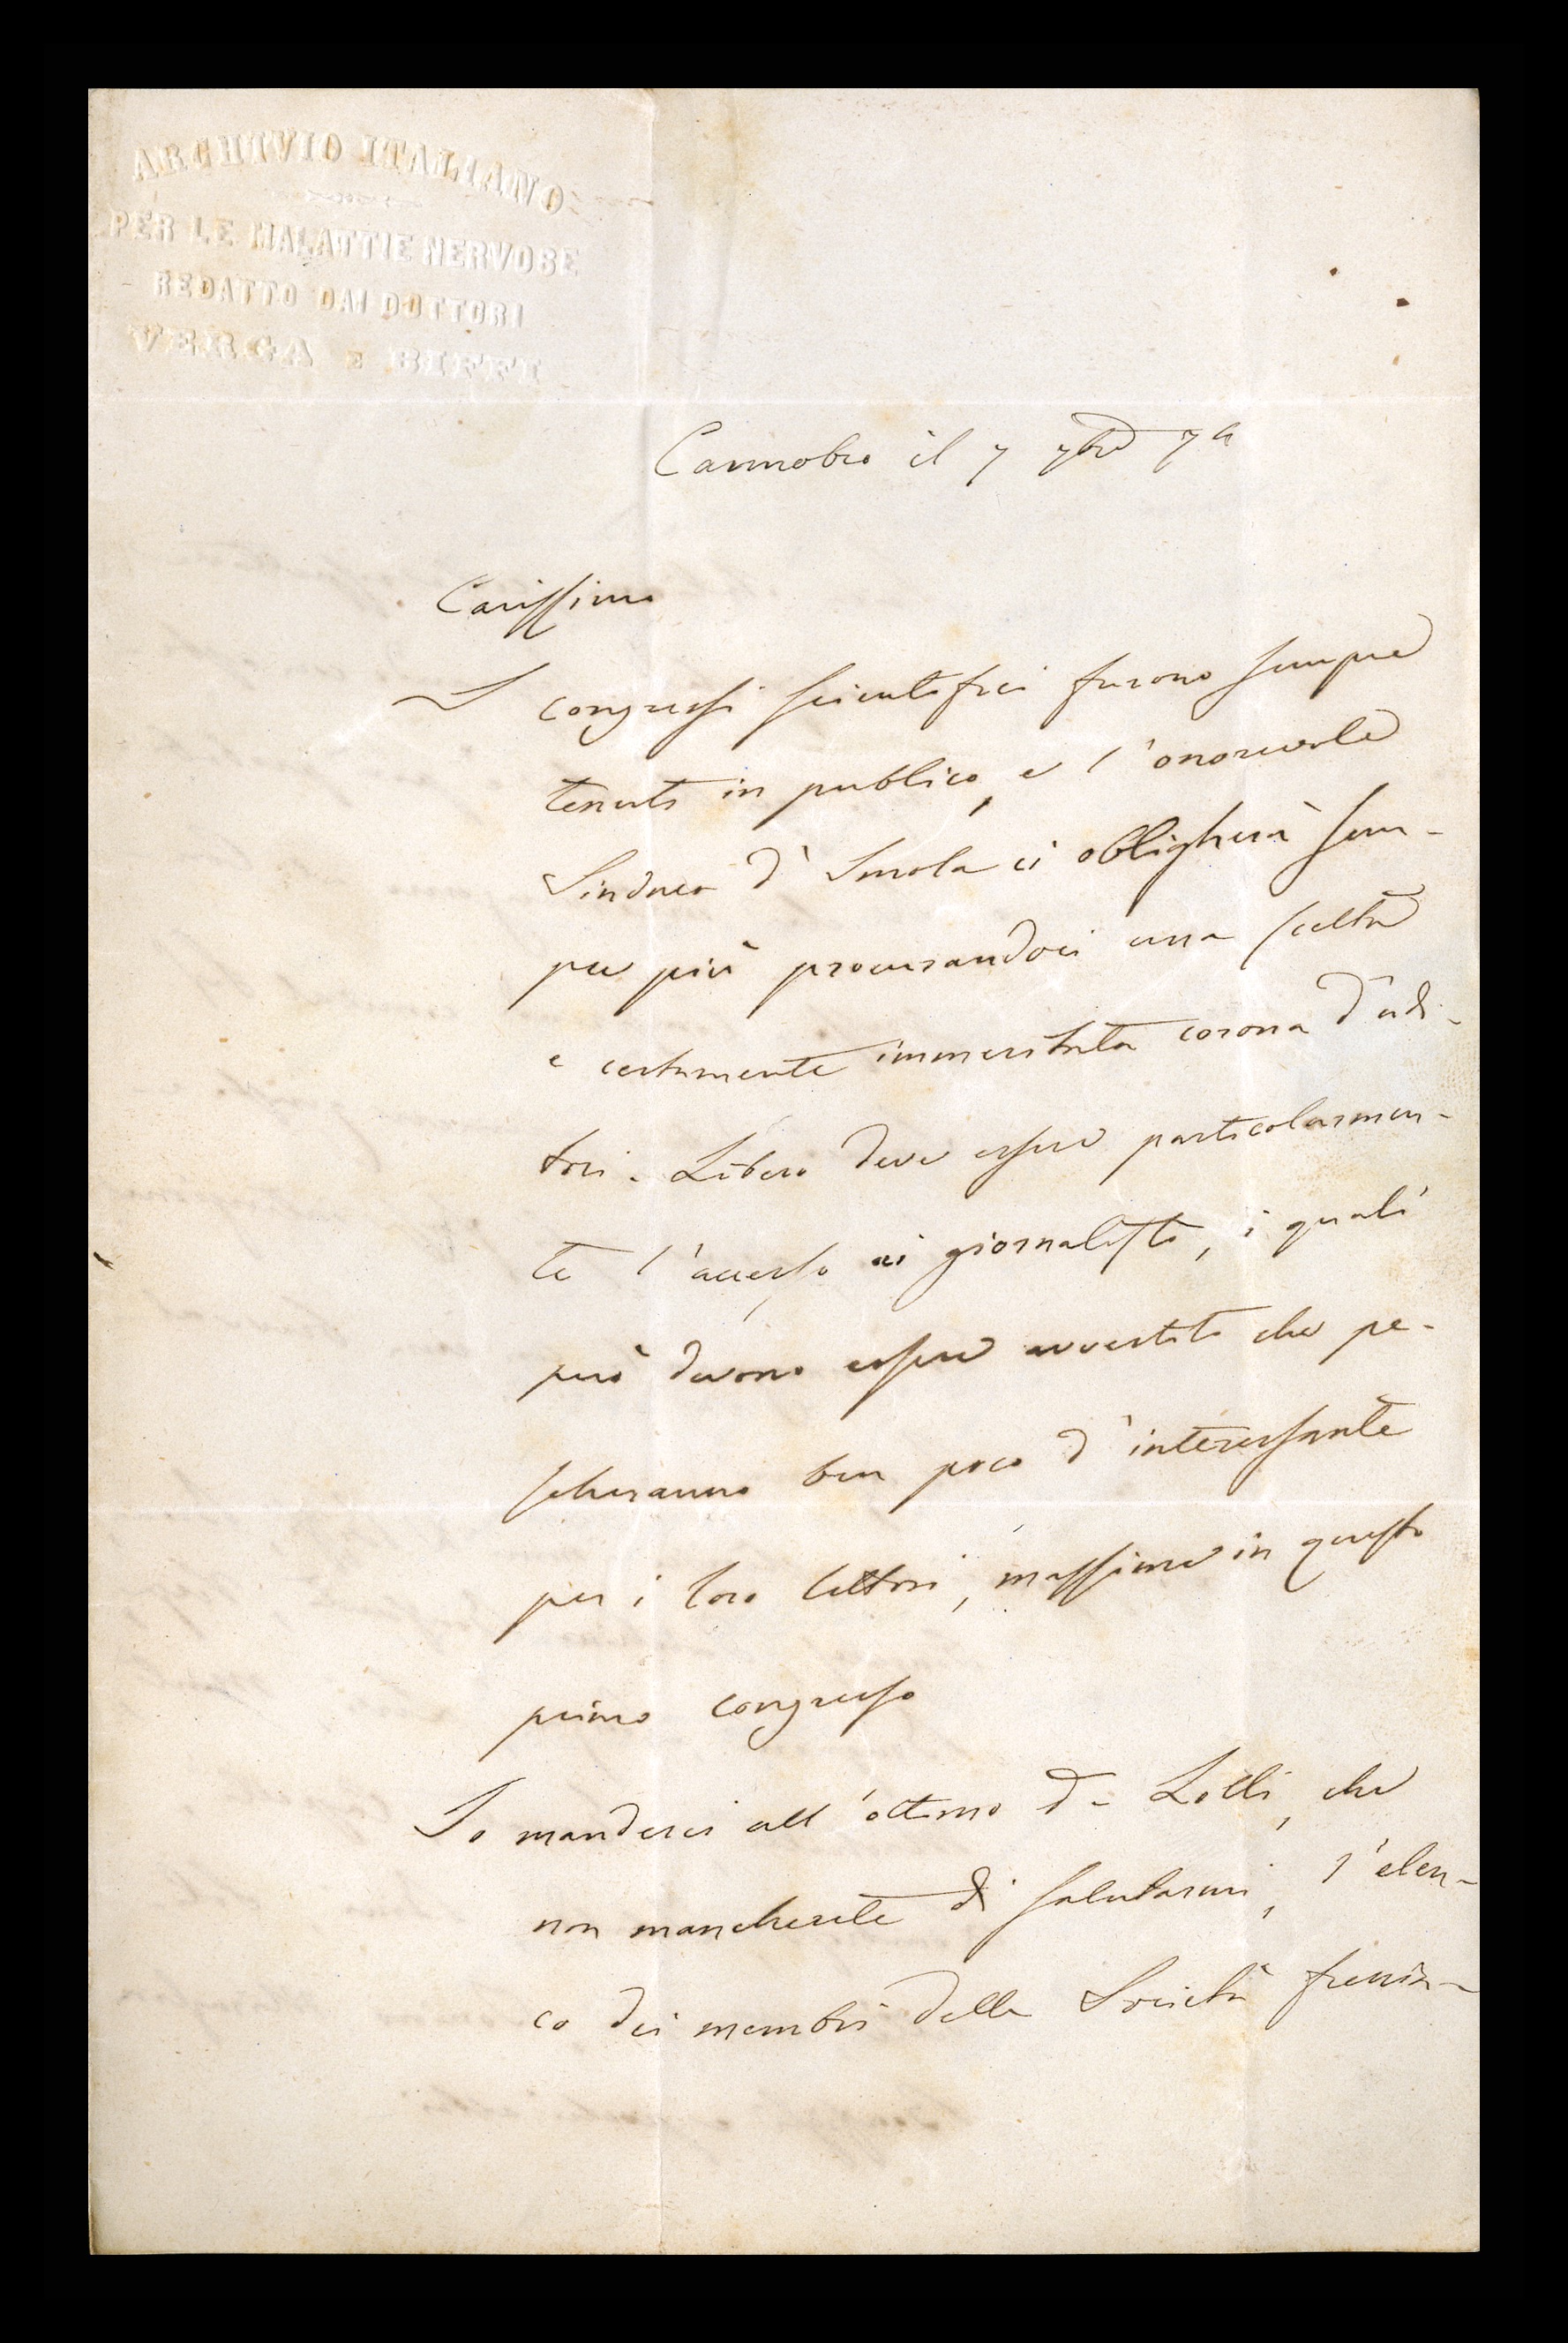 ARCHIVIO ITALIANO
PER LE MALATTIE NERVOSE
REDATTO DAI DOTTORI
VERGA E BIFFI
Cannobio il 7 7bre 74
Carissimo
I congressi scientifici furono sempre
tenuti in publico, e l'onorevole
Sindaco d'Imola ci obligherà sem-
pre più procurandoci una scelta
e certamente immeritata corona d'udi-
tori. Libero deve essere particolarmen-
te l'accesso ai giornalisti, i quali
però devono essere avvertiti che pe-
scheranno ben poco d'interessante
per i loro lettori, massime in questo
primo congresso
Io manderei all'ottimo d. Lolli, che
non mancherete di salutarmi, l'elen-
co dei membri della Società frenia-